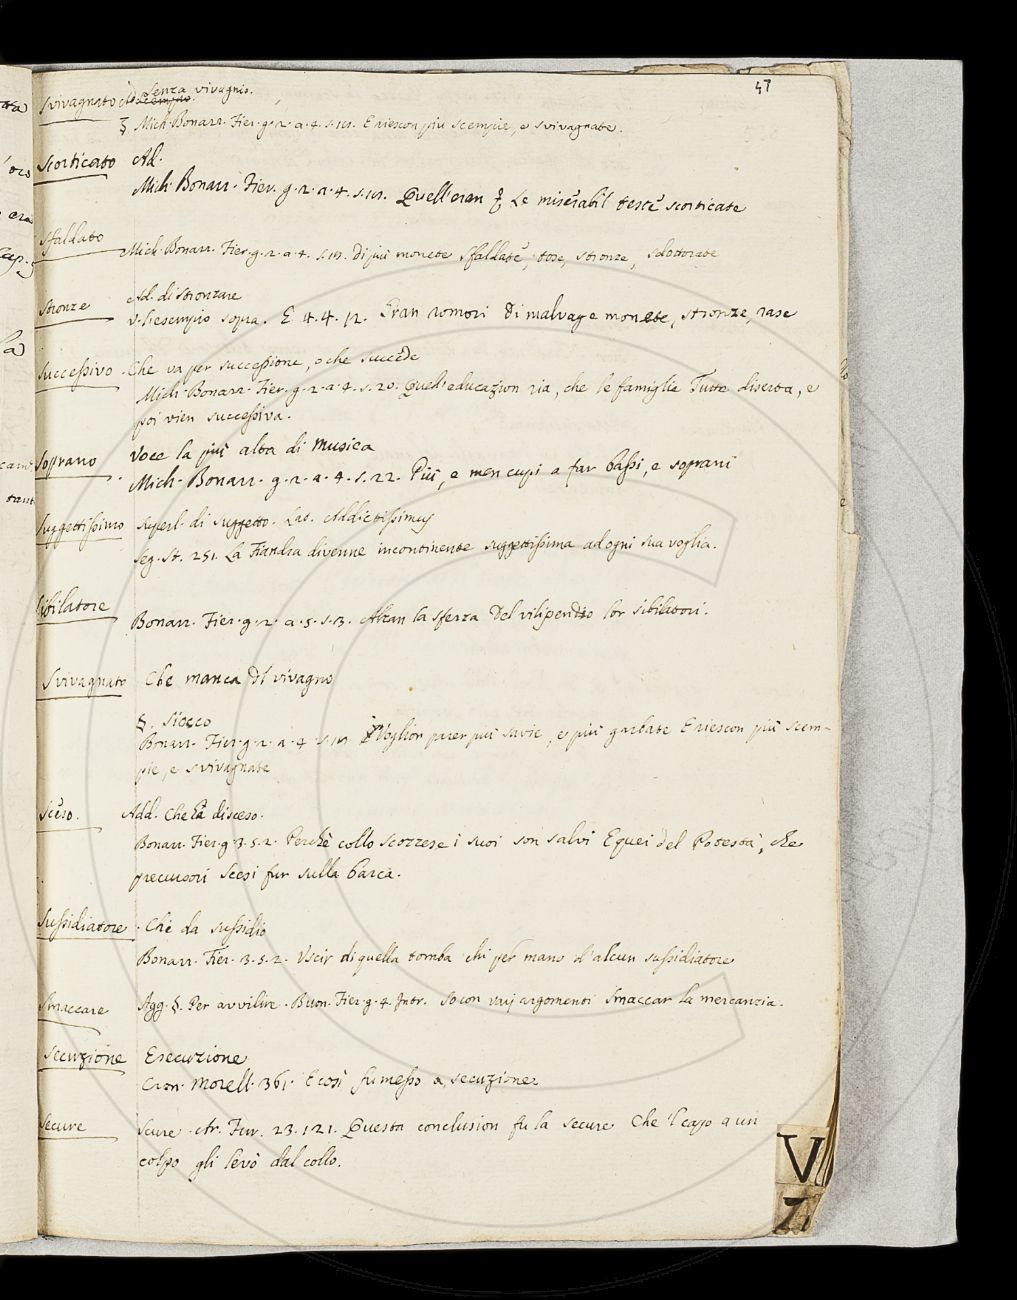 47
Svivagnato Ad. senza vivagnio.
§. Mich. Bonarr. Fier. g. 2. a. 4. s. 18. E riescon più scempie, e svivagnate.
Scorticato Ad.
Mich. Bonarr. Fier. g. 2. a. 4. s. 18. Quell'eran Le miserabil teste scorticate
Sfaldato Mich. Bonarr. Fier. g. 2. a. 4. s. 18. Di più monete sfaldate, tose, stronze, sdottorate
Stronze Ad. di stronzare
V. l'esempio sopra. E 4. 4. 12. Eran romori di malvage monete, stronze, rase
Successivo Che va per successione, o che succede
Mich. Bonarr. Fier. g. 2. a. 4. s. 20. Quell'educazion ria, che le famiglie Tutte diserta, e
poi vien successiva.
Soprano Voce la più alta di musica
Mich. Bonarr. g. 2. a. 4. s. 22. Più, e men cupi a far bassi, e soprani
Suggettissimo superl. di suggetto. Lat. Addictissimus
Seg. St. 251. La Fiandra divenne incontinente suggettissima ad ogni sua voglia.
Sibilatore
Bonarr. Fier. g. 2. a. 5. s. 3. Alzan la sferza Del vilipendio lor sibilatori.
Svivagnato Che manca di vivagno
§. Siocco
Bonarr. Fier. g. 2. a. 4. s. 18. Voglion parer più savie, e più garbate E riescon più scem-
pie, e svivagnate
Sceso. Add. che è disceso.
Bonarr. Fier. g. 3. 5. 2. Perchè collo scozzese i suoi son salvi E quei del Potestà, che
precursori Scesi fur sulla barca.
Sussidiatore Che da sussidio
Bonarr. Fier. 3. 5. 2. Uscir di quella tomba chi per mano d'alcun sussidiatore
Smaccare Agg. §. Per avvilire. Buon. Fier. g. 4. Intr. So con varj argomenti Smaccar la mercanzia.
Secuzione Esecuzione
Cron. Morell. 361. E così fu messo a secuzione
Secure Scure. Ar. Fur. 23. 121. Questa conclusion fu la secure Che 'l capo a un
colpo gli levò dal collo.
V
Z